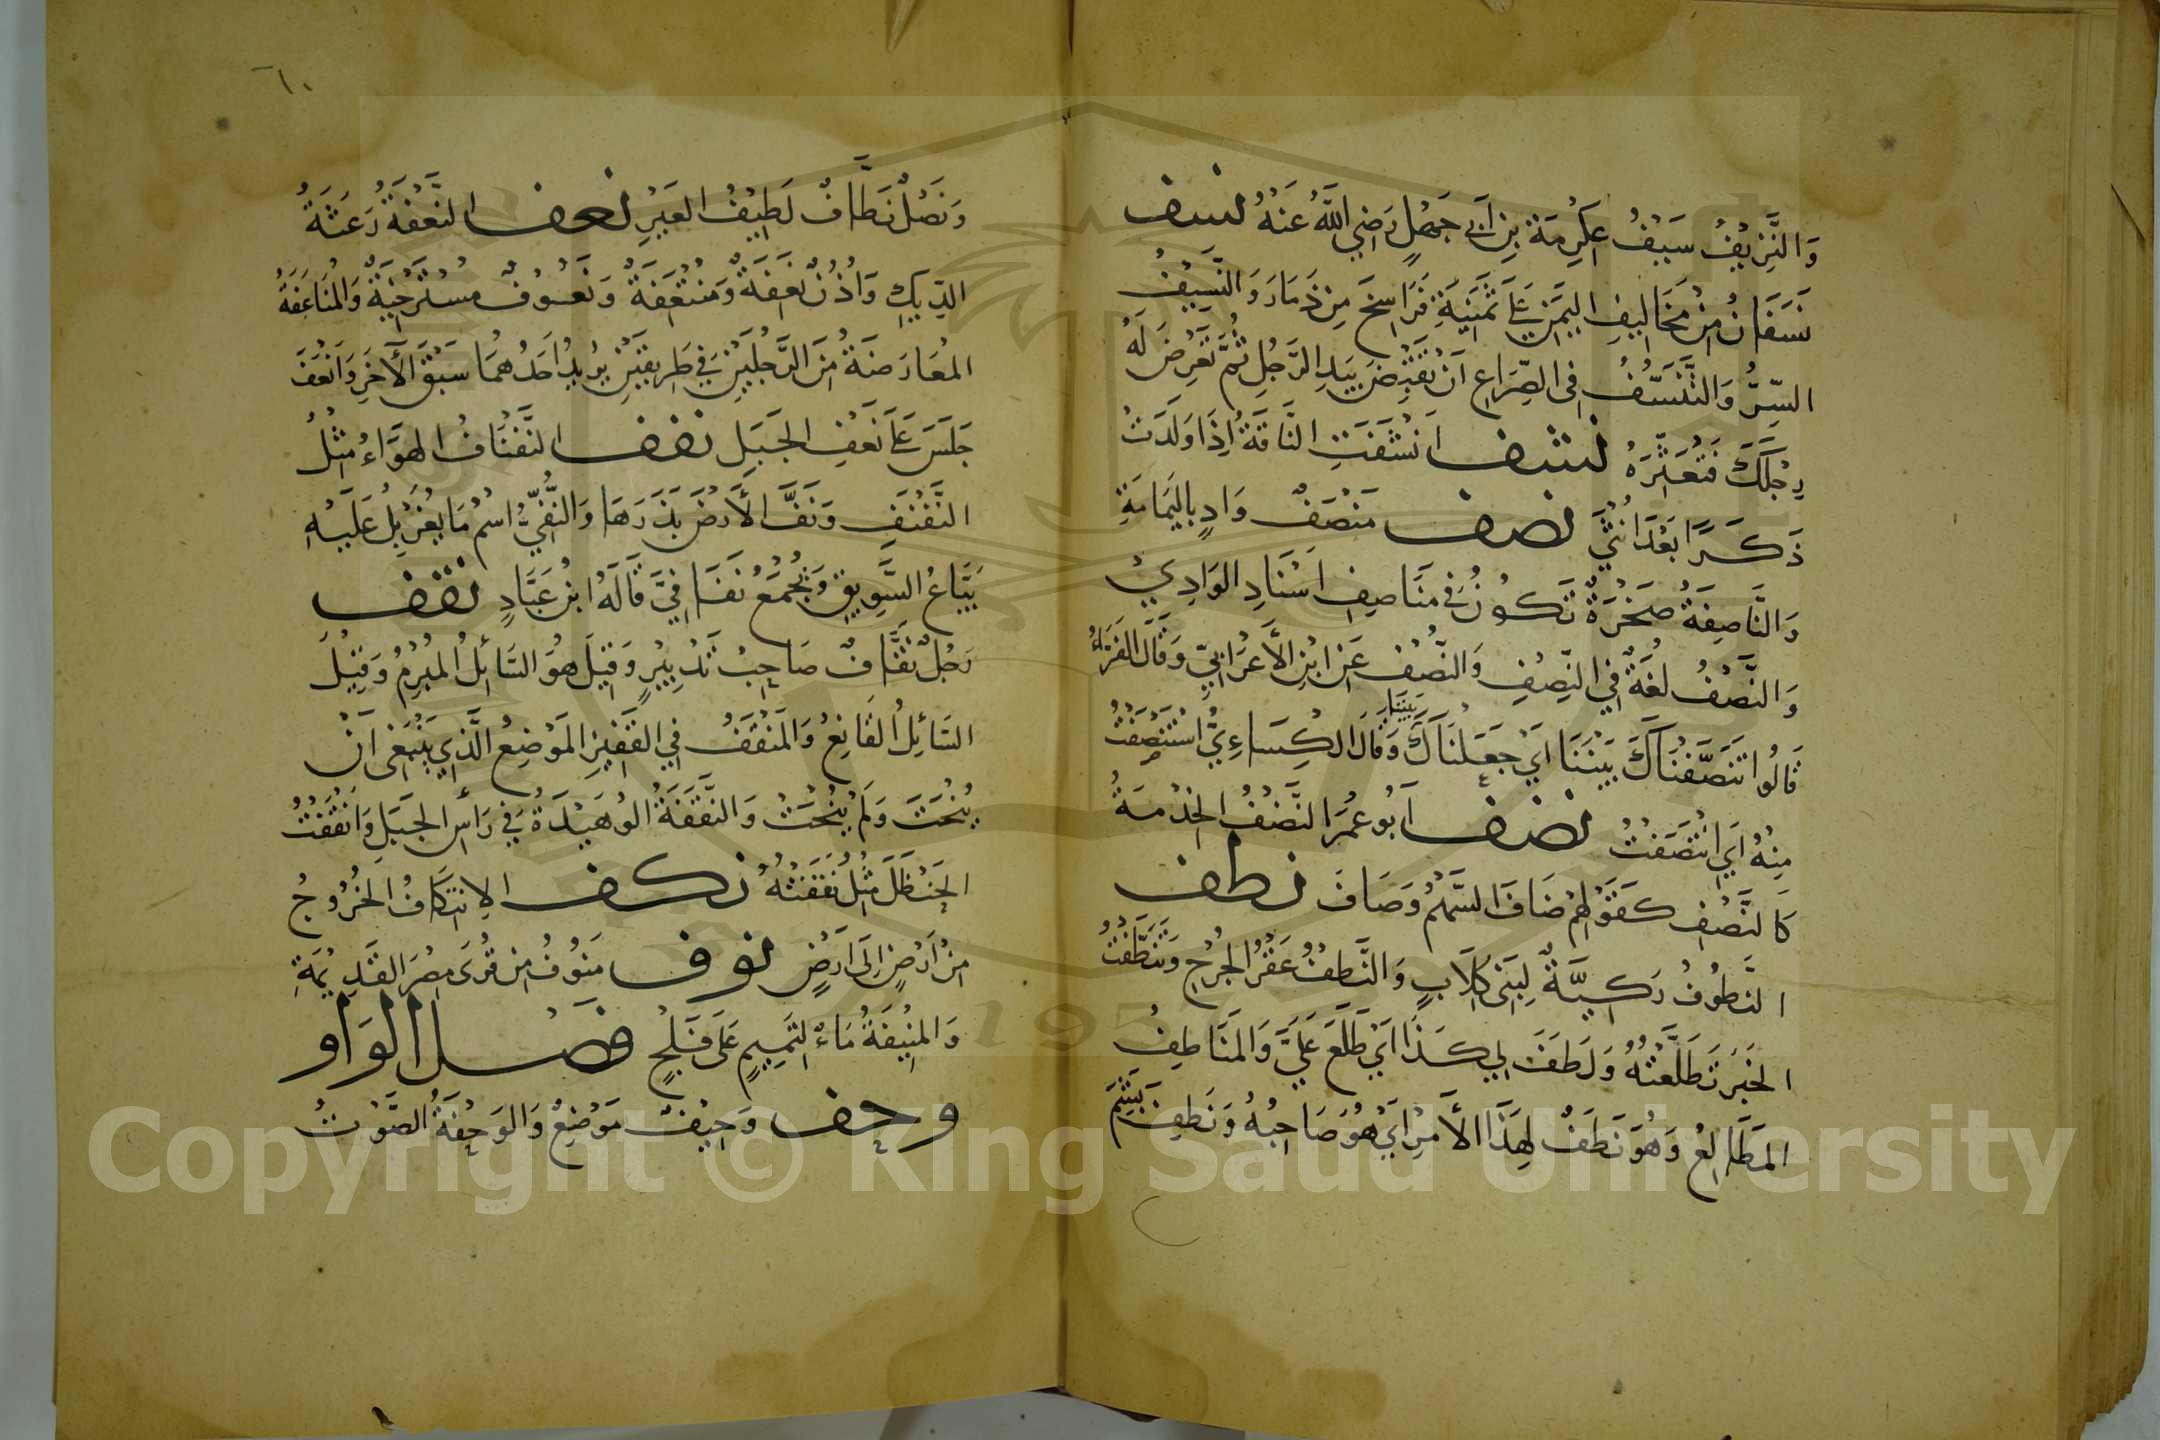 وَالنَّزِيْفُ سَيْفُ عِكْرِمَةَ بْنِ أَبِي جَهْلٍ رَضِيَ اللّٰهُ عَنْهُ نسف
نَسَفَانُ مِنْ مَخَالِيفِ اليَمَنِ عَلَى ثَمَنِيَةِ فَرَاسِخَ مِنْ ذَمَارَ وَالنَّسِيْفُ
السِّرُّ وَالتَّنَسُّفُ فِي الصِّرَاعِ اَنْ تَقْبِضَ بِيَدِ الرَّجُلِ ثُمَّ تَعْرِضَ لَهُ
رِجْلَكَ فَتُعَثِّرَهُ نشف اَنْشَفَتِ النَّاقَةُ اِذَا وَلَدَتْ
ذَكَرًا بَعْدَ اُنْثَى نصف مَنْصَفٌ وَادٍ بِاليَمَامَةِ
وَالنَّاصِفَةُ صَخْرَةٌ تَكُونُ فِي مَنَاصِفِ اَسْنَادِ الوَادِي
وَالنَّصْفُ لُغَةٌ فِي النِّصْفِ وَالنُّصْفِ عَنِ ابْنِ الأَعْرَابِيِّ وَقَالَ الفَرَّاءُ
قَالُوا تَنَصَّفْنَاكَ بَيْنَنَا اَيْ جَعَلْنَاكَ بَيْنَنَا وَقَالَ الكِسَاءِيُّ اسْتَنْصَفْتُ
مِنْهُ اَيِ انْتَصَفْتُ نضف اَبُو عُمَرَ النَّضْفُ الخِدْمَةُ
كَالنَّصْفِ كَقَوْلِهِمْ ضَافَ السَّهْمُ وَصَافَ نطف
النَطُوفُ رَكِيَّةٌ لِبَنِي كِلَابٍ وَالنَّطْفُ عَقْرُ الجُرْحِ وَتَنَطَّفْتُ
الخَبَرَ تَطَلَّعْتُهُ وَنَطَفَ لِي كَذَا اَيْ طَلَعَ عَلَيَّ وَالمَنَاطِفُ
المَطَالِعُ وَهُوَ نَطَفٌ لِهَذَا الأَمْرِ اَيْ هُوَ صَاحِبُهُ وَنَطِفَ بَشِمَ
٦٠
وَنَصْلٌ نَطَّافٌ لَطِيْفُ العَيْرِ نعف النَّعْفَةُ رَعَثَةُ
الدِيكِ وَاُذُنٌ نَعِفَةٌ وَمُنْتَعِفَةٌ وَنَعُوفٌ مُسْتَرْخِيَةٌ وَالمُنَاعَفَةُ
المُعَارَضَةُ مِنَ الرَّجُلَيْنِ فِي طَرِيقَيْنِ يُرِيدُ اَحَدُهُمَا سَبْقَ الآخَرِ وَاَنْعَفَ
جَلَسَ عَلَى نَعْفِ الجَبَلِ نفف النَّفْنَافُ الهَوَاءُ مِثْلُ
النَّفْنَفِ وَنَفَّ الأَرْضَ بَذَرَهَا وَالنُّفِّيُّ اسْمُ مَا يُغَرْبِلُ عَلَيْهِ
بَيَّاعُ السَّوِيْقِ وَيُجْمَعُ نَفَافِيَّ قَالَهُ ابْنُ عَبَّادٍ نقف
رَجُلٌ نَقَّافٌ صَاحِبُ تَدْبِيْرٍ وَقِيْلَ هُوَ السَّائِلُ المُبْرِمُ وَقِيْلَ
السَّائِلُ القَانِعُ وَالمَنْقَفُ فِي القَفِيْزِ المَوْضِعُ الَّذِي يَنْبَغِي اَنْ
يُنْحَتَ وَلَمْ يُنْحَتْ وَالنَّقْفَةُ الوُهَيْدَةُ فِي رَأسِ الجَبَلِ وَاَنْقَفْتُ
الحَنْظَلَ مِثْلُ نَقَفْتُهُ نكف الِانْتِكَافُ الخُرُوجُ
مِنْ اَرْضٍ اِلَى اَرْضٍ نوف مَنُوْفُ مِنْ قُرَى مِصْرَ القَدِيْمَةِ
وَالمُنِيْفَةُ مَاءٌ لِتَمِيمٍ عَلَى فَلْجٍ فصل الواو
وحف وَحِيْفٌ مَوْضِعٌ وَالوَحْفَةُ الصَّوْتُ
Copyright © King Saud University